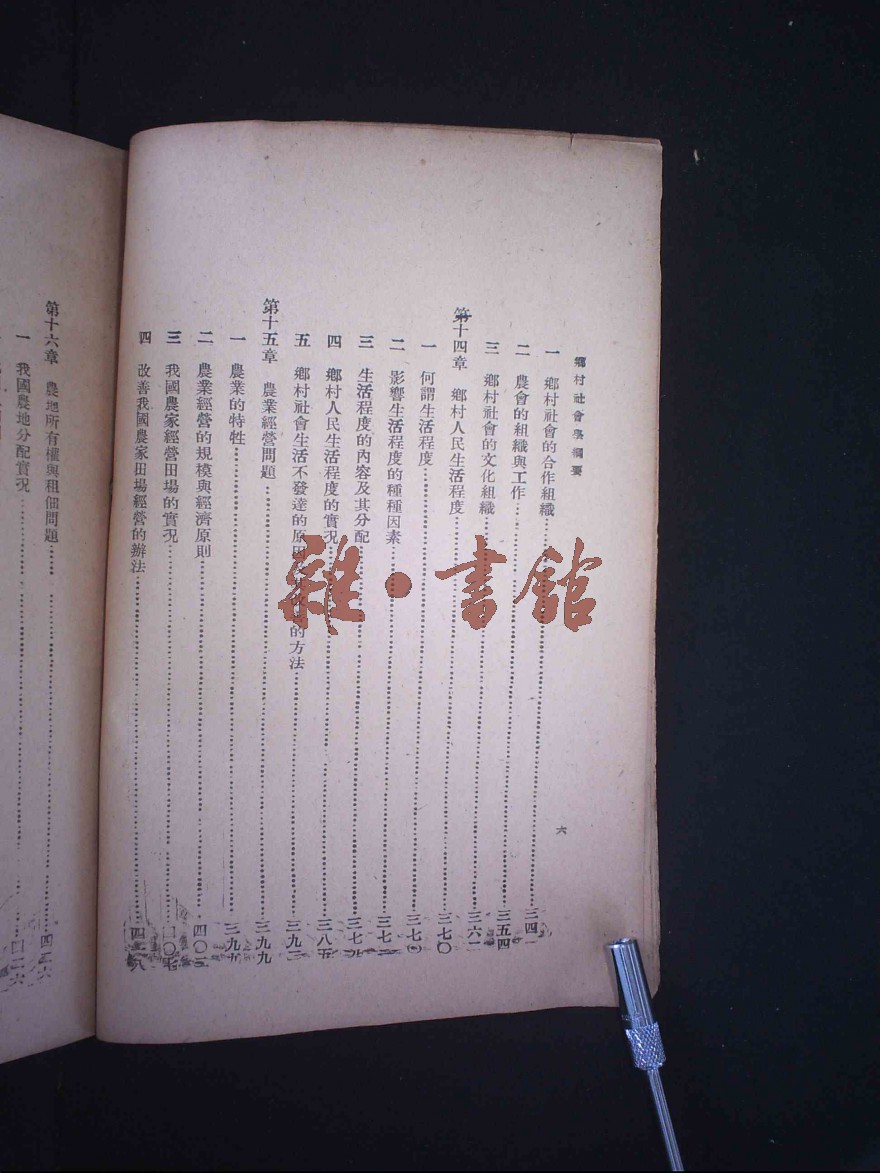 鄉村社會學綱要
一 鄉村社會的合作組織……三四一
二 農會的組織與工作……三五四
三 鄉村社會的文化組織……三六二
第十四章 鄉村人民生活程度……三七〇
一 何謂生活程度……三七〇
二 影響生活程度的種種因素……三七
三 生活程度的內容及其分配……三七
四 鄉村人民生活程度的實況……三八五
五 鄉村社會生活不發達的原因 的方法……三九二
第十五章 農業經營問題……三九九
一 農業的特性……三九九
二 農業經營的規模與經濟原則……四〇
三 我國農家經營田場的實況……四〇七
四 改善我國農家田場經營的辦法……四 八
六
第十六章 農地所有權與租佃問題……四二六
一 我國農地分配實況……四二六
雜·書館